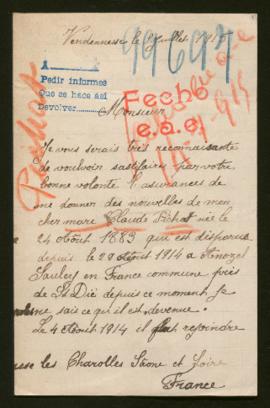 Vendennesse le Juillet
99697
A
Pedir informes
Que se hace asi
Devolver
Fecho
e.a.e.
Monsieur
Je vous serais très reconnaisante
de vouloir sastifaire par votre
bonne volonté d'assurances de
me donner des nouvelles de mon
cher mari Claude Pichot né le
24 Août 1883 qui est disparue
depuis le 29 Août 1914 a
Saulcy en France commune près
de St Dié depuis ce moment je
ne sais ce qu'il est devenue.
Le 4 Août 1914 il fut rejoindre
les Charolles Saone et Loire
France